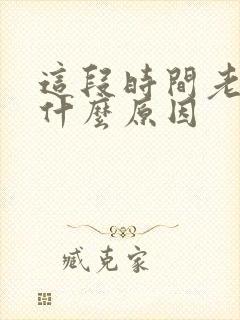 這段時間老
什麼原因
臧克家